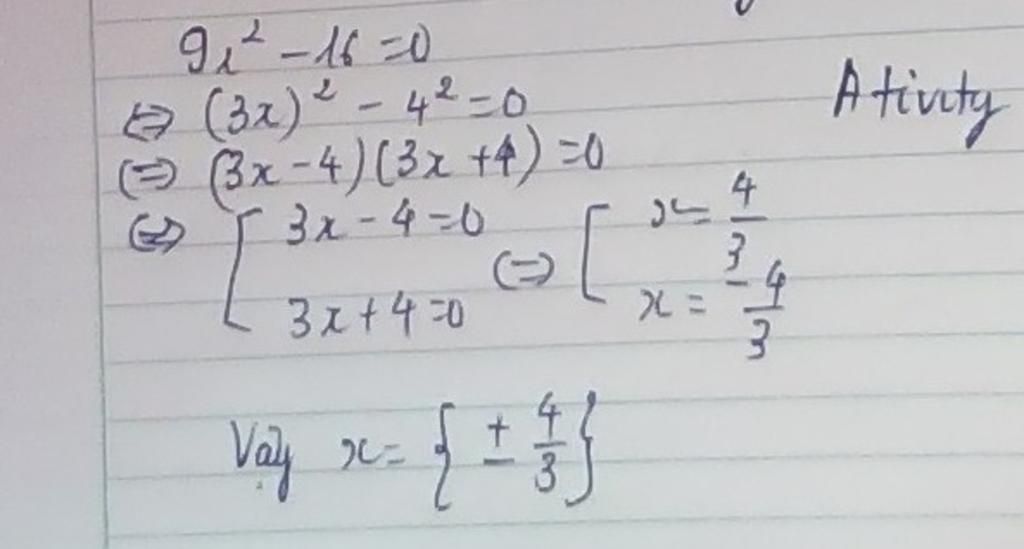 9x² - 16 = 0
⇔ (3x)² - 4² = 0
Ativity
⇔ (3x - 4)(3x + 4) = 0
⇔ [ 3x - 4 = 0 ⇔ [ x = 4/3
3x + 4 = 0 x = -4/3
Vậy x = { ± 4/3 }